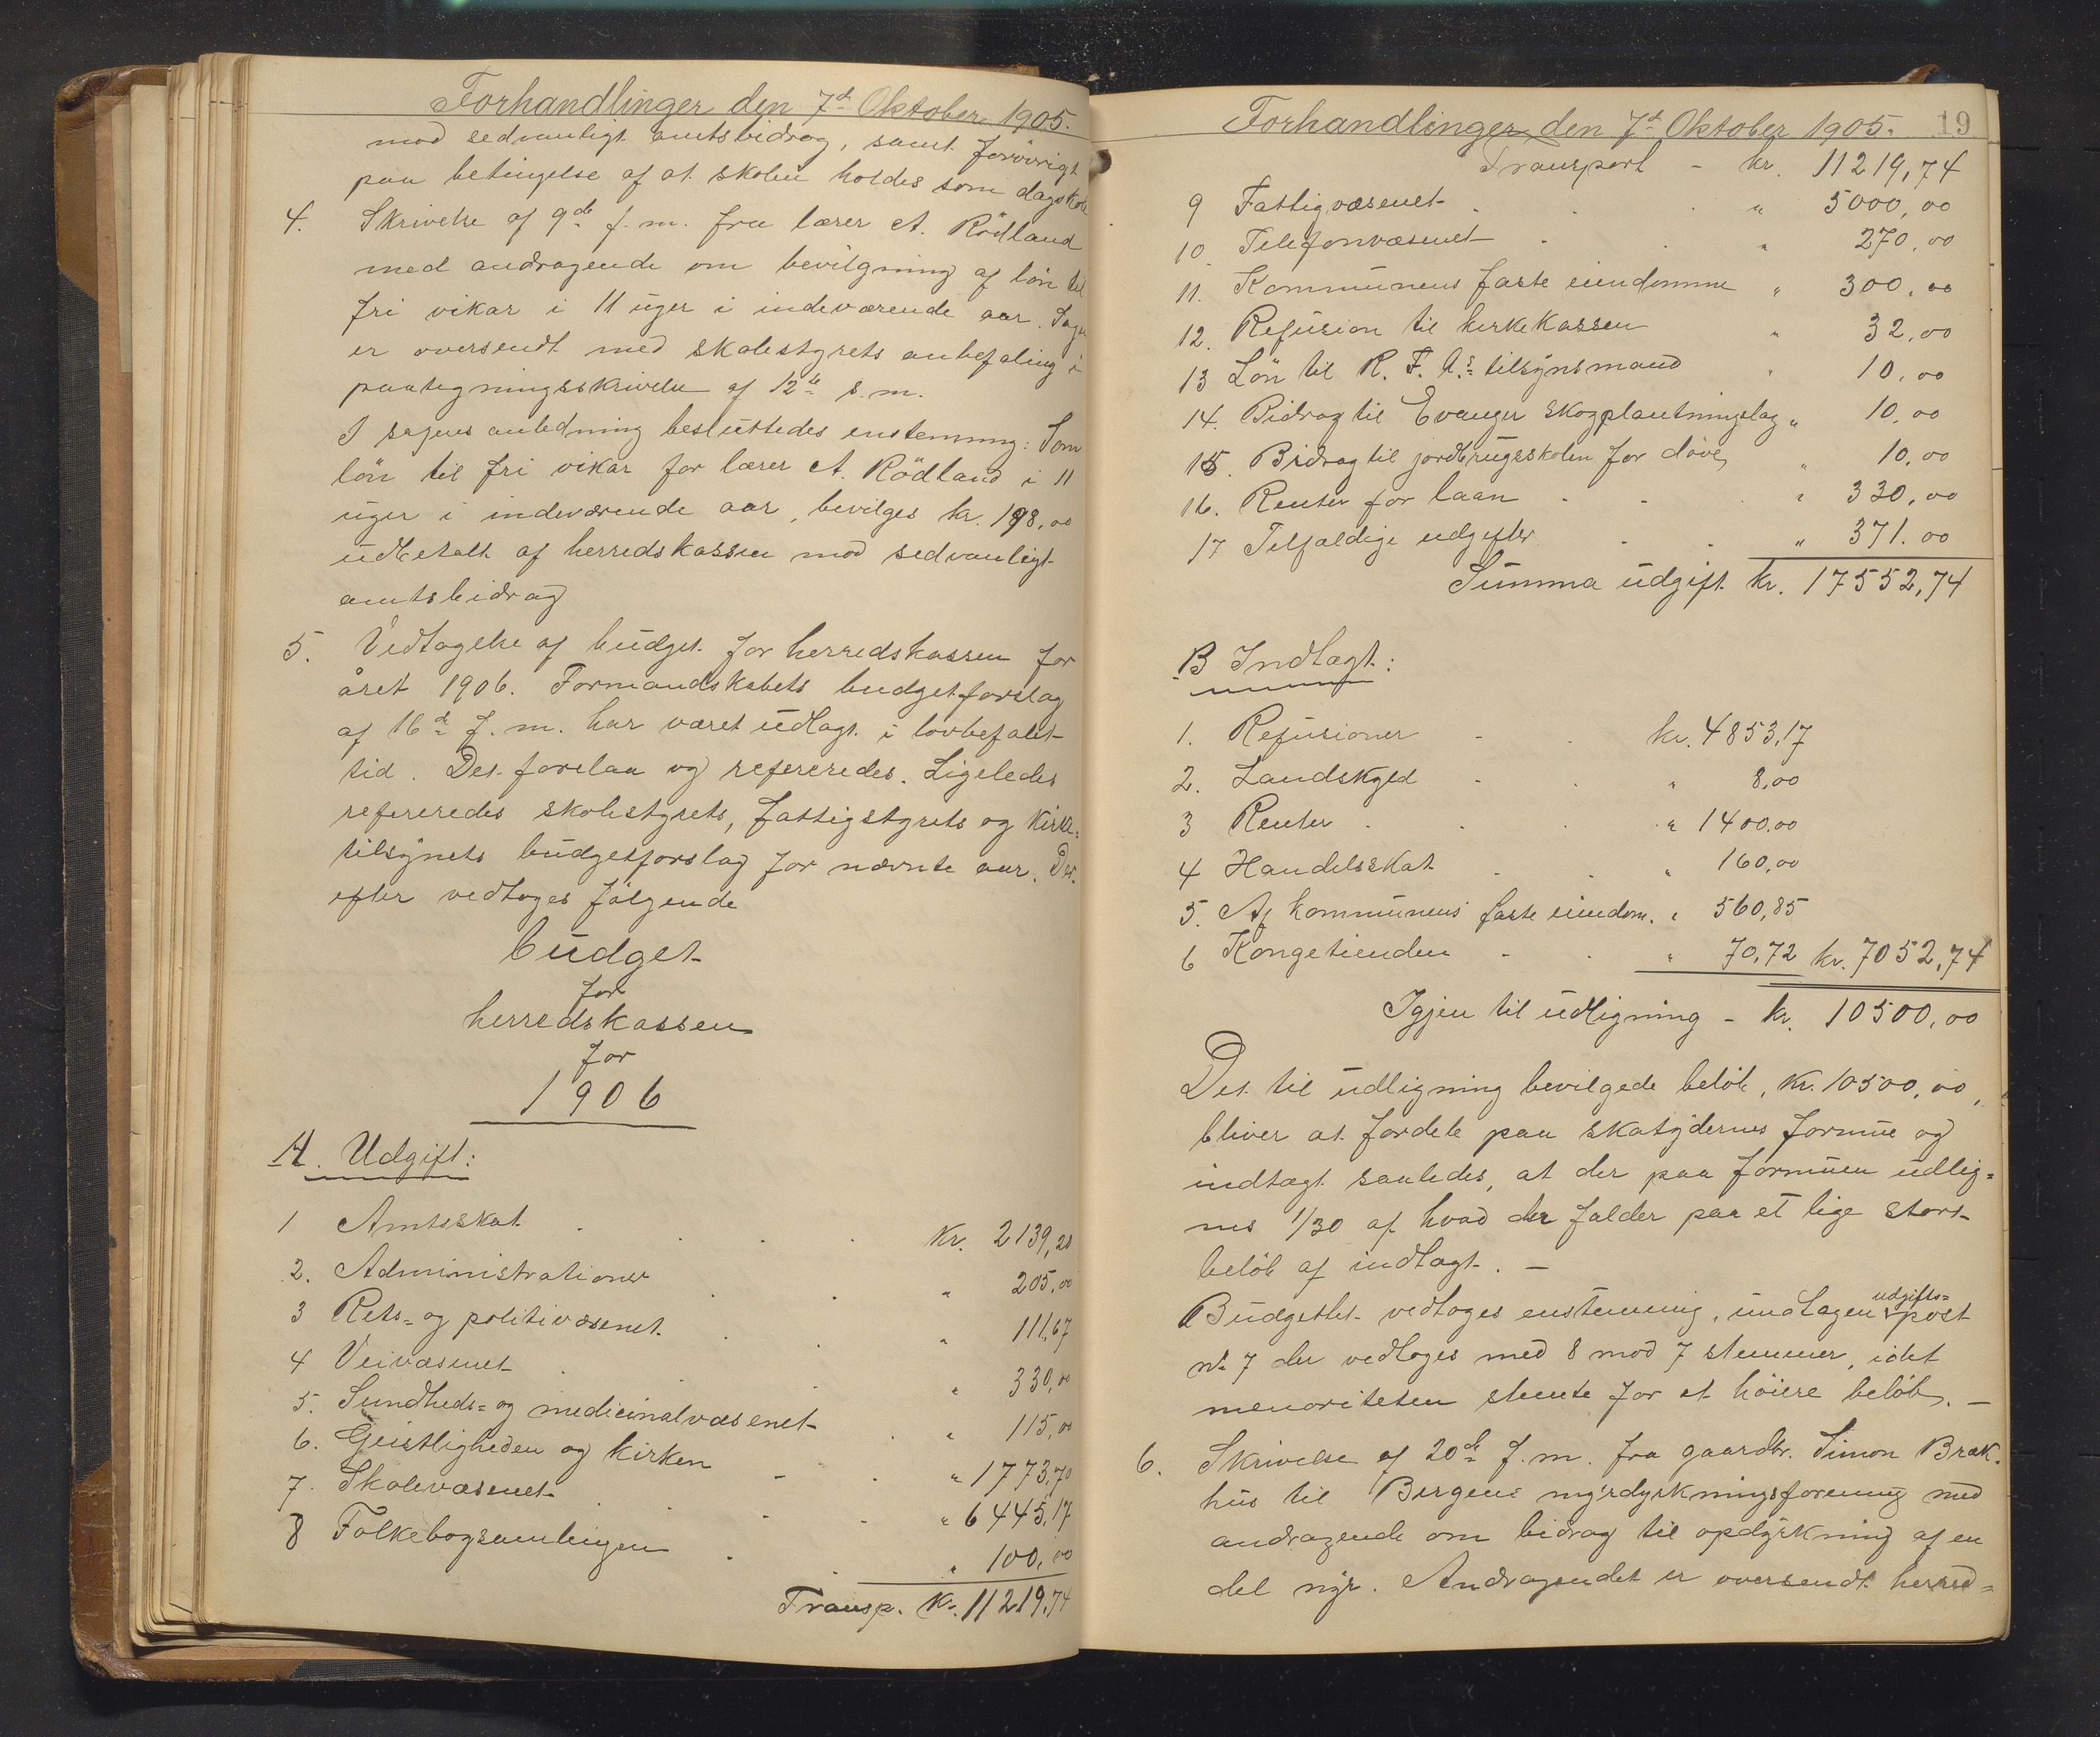 Forhandlinger den 7d Oktober 1905.
mod sedvanligt amtsbidrag, samt forövrigt
paa betingelse af at skolen holdes som dagskole
4. Skrivelse af 9de f.m. fra lærer A. Rödland
med andragende om bevilgning af lön til
fri vikar i 11 uger i indeværende aar. Sagen
er oversendt med skolestyrets anbefaling i
paategningsskrivelse af 12te s.m.
I sagens anledning besluttedes enstemmig: Som
lön til fri vikar for lærer A. Rödland i 11
uger i indeværende aar, bevilges kr. 198,00
udbetalt af herredskassen mod sedvanligt
amtsbidrag
5. Vedtagelse af budget for herredskassen for
året 1906. Formandskabets budgetforslag
af 16d f.m. har været udlagt i lovbefalet
tid. Det forelaa og refereredes. Ligeledes
refereredes skolestyrets, fattigstyrets og kirke=
tilsynets budgetforslag for nævnte aar. Der-
efter vedtoges fölgende
budget
for
herredskassen
for
1906
A. Udgift:
1 Amtsskat . . . . Kr. 2139,20
2. Administrationer . . " 205,00
3 Rets= og politivæsenet . . " 111,67
4 Veivæsenet . . " 330,00
5. Sundheds= og medicinalvæsenet . " 115,00
6. Geistligheden og kirken - . " 1773,70
7. Skolevæsenet - . " 6445,17
8 Folkebogsamlingen . . " 100,00
Transp. Kr. 11219,74
Forhandlinger den 7d Oktober 1905. 19
Transport - kr. 11219,74
9 Fattigvæsenet . . . " 5000,00
10. Telefonvæsenet . . " 270,00
11. Kommunens faste eiendomme " 300,00
12. Refusion til kirkekassen " 32,00
13 Lön til R. F. A.s tilsynsmand " 10,00
14. Bidrag til Evanger skogplantningslag " 10,00
15. Bidrag til jordbrugsskolen for döve " 10,00
16. Renter for laan . . . " 330,00
17 Tilfældige udgifter . . " 371.00
Summa udgift kr. 17552,74
B Indtægt:
1. Refusioner - . kr. 4853,17
2. Landskyld . . " 8,00
3 Renter . . . " 1400,00
4 Handelsskat . . " 160,00
5. Af kommunens faste eiendom. " 560,85
6 Kongetienden - . " 70,72 kr. 7052,74
Igjen til udligning - kr. 10500,00
Det til udligning bevilgede belöb, Kr. 10500,00,
bliver at fordele paa skatydernes formue og
indtægt saaledes, at der paa formuen udlig=
nes 1/30 af hvad der falder paa et lige stort
belöb af indtægt. -
Budgettet vedtoges enstemmig, undtagen udgifts=post
No 7 der vedtoges med 8 mod 7 stemmer, idet
menoriteten stemte for et höiere belöb. -
6. Skrivelse af 20de f.m. fra gaardbr. Simon Bræk-
hus til Bergens myrdyrkningsforening med
andragende om bidrag til opdyrkning af en
del myr. Andragendet er oversendt herred=